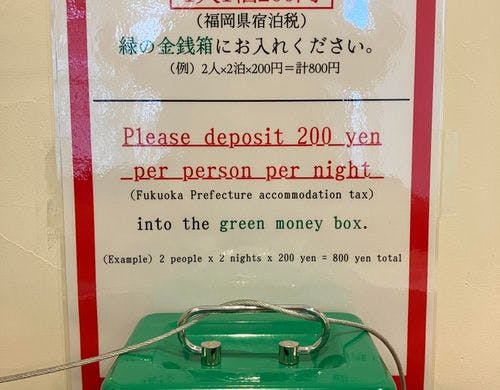 1人1泊200円
（福岡県宿泊税）
緑の金銭箱にお入れください。
（例）2人×2泊×200円＝計800円
Please deposit 200 yen
per person per night
(Fukuoka Prefecture accommodation tax)
into the green money box.
(Example) 2 people x 2 nights x 200 yen = 800 yen total